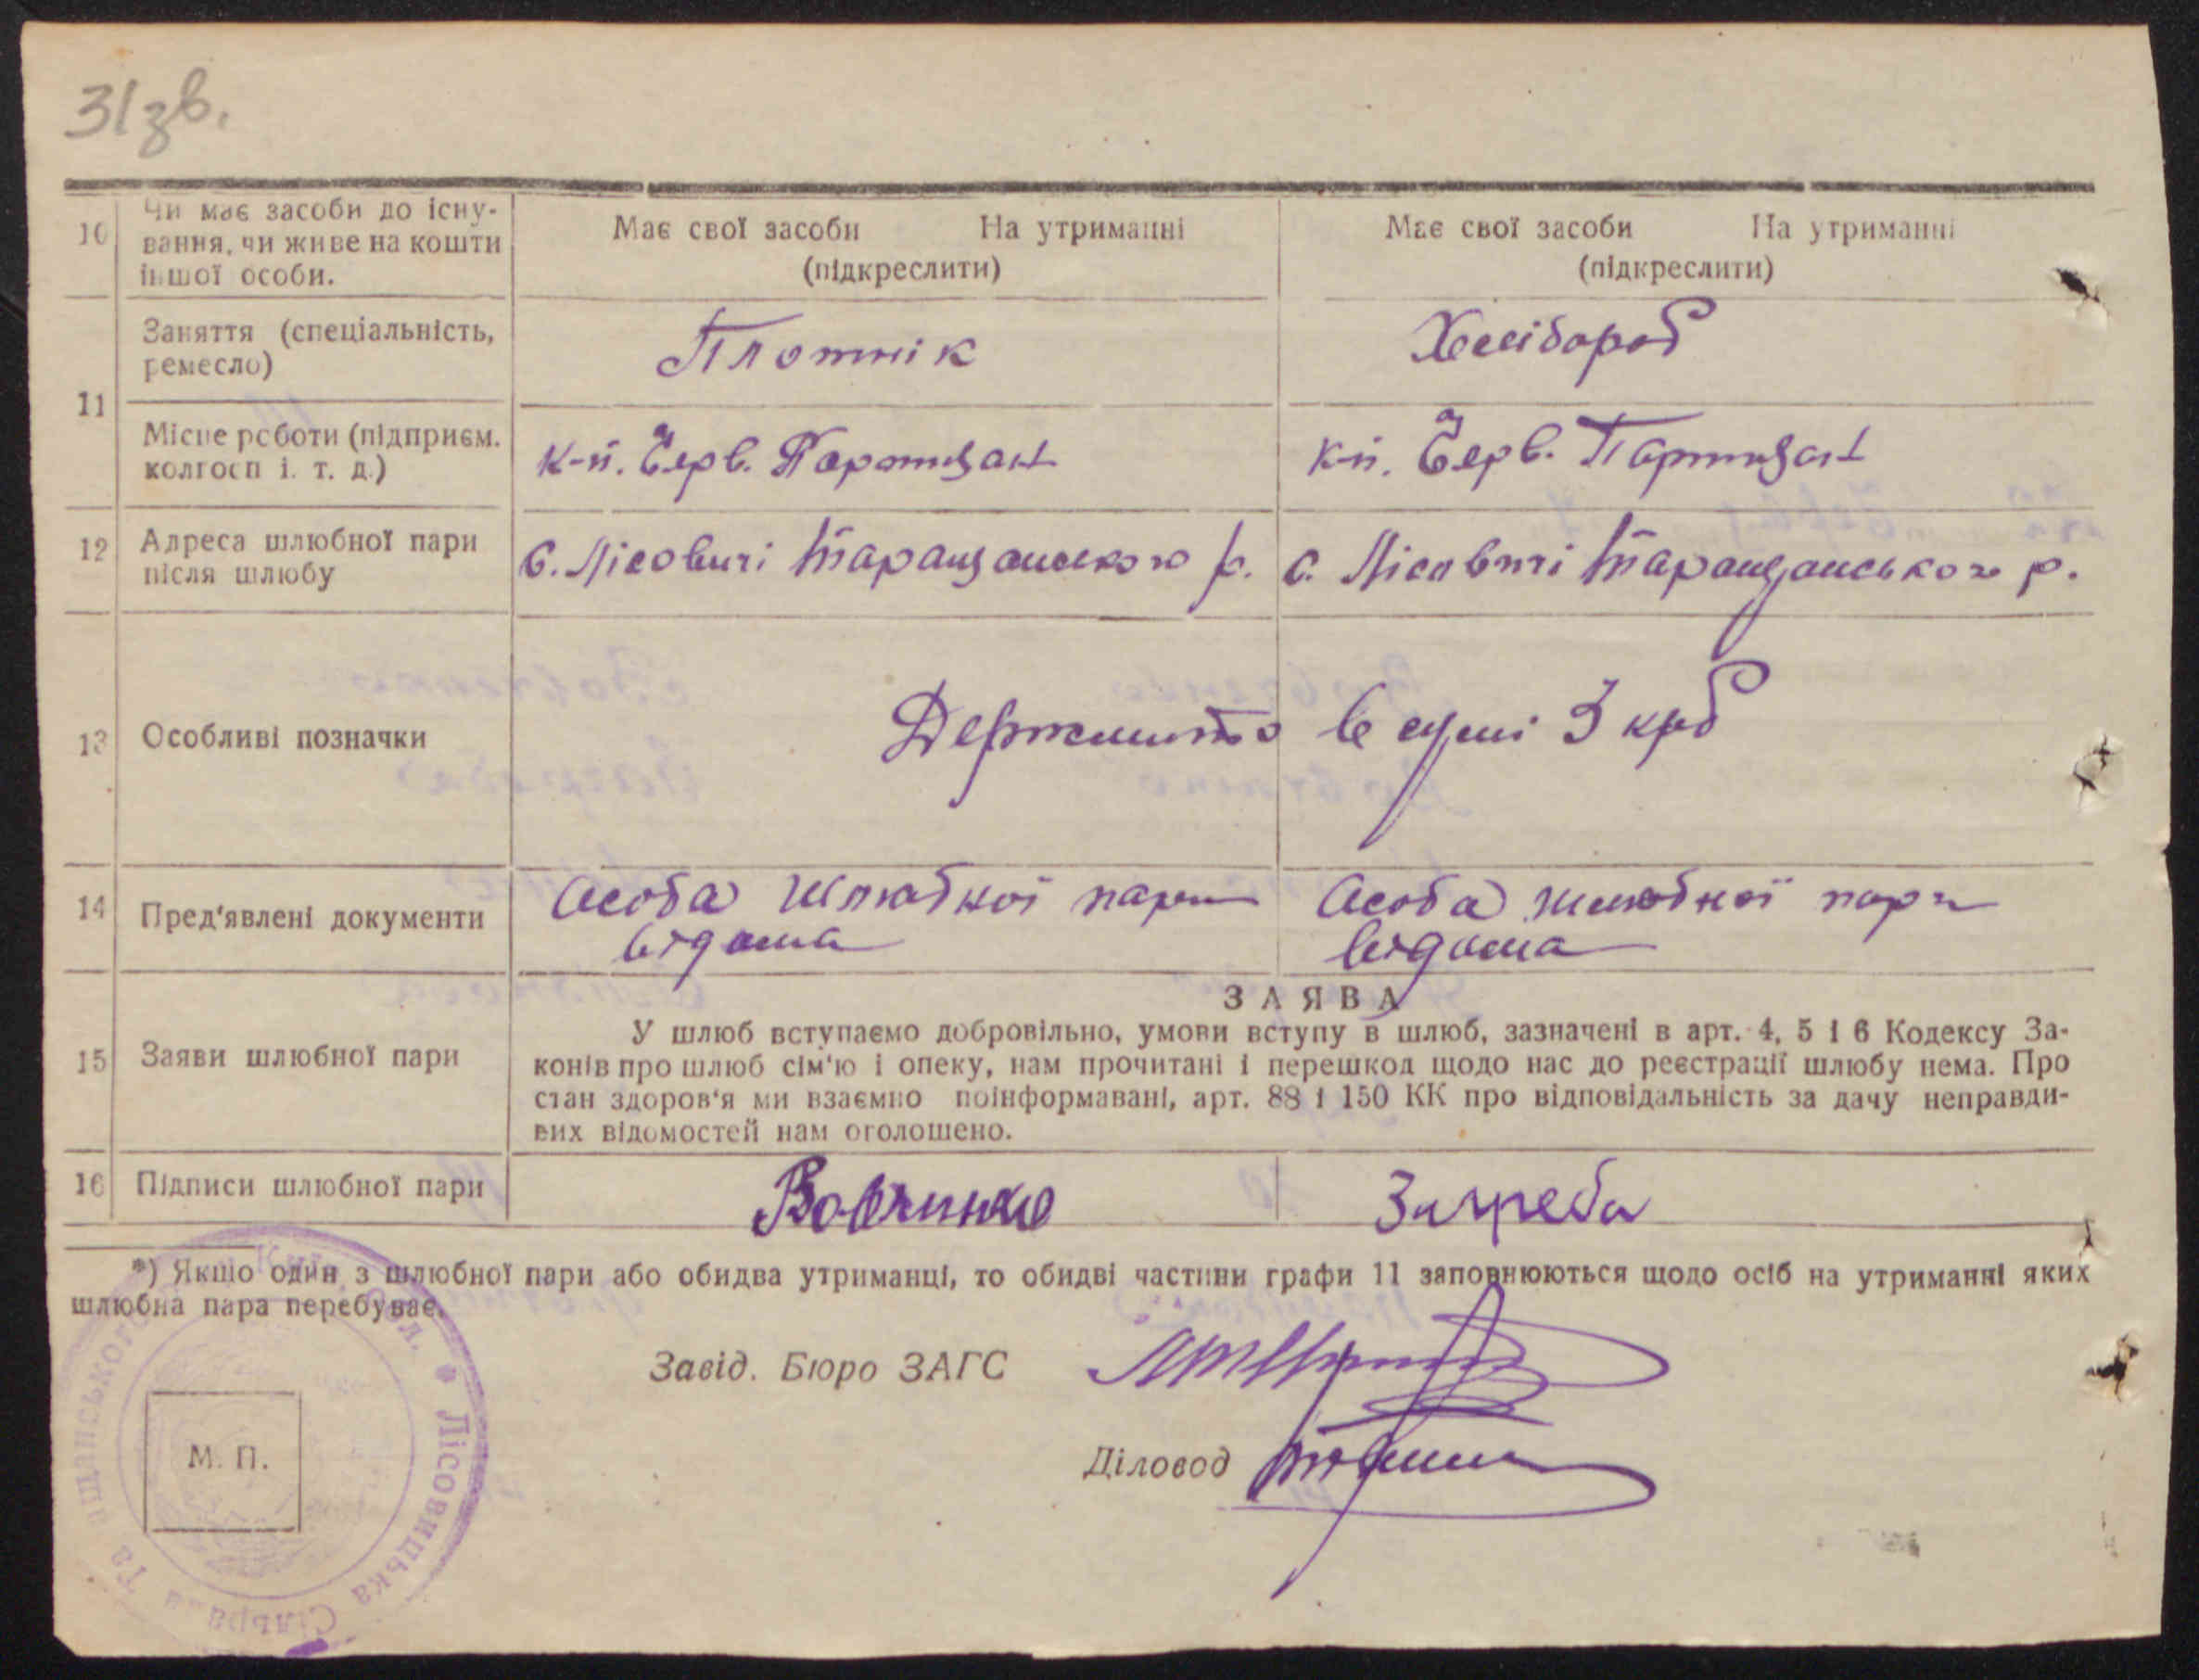 31зв.
10 Чи має засоби до існу-
вання, чи живе на кошти
іншої особи.
Має свої засоби На утриманні
(підкреслити)
Має свої засоби На утриманні
(підкреслити)
11
Заняття (спеціальність,
ремесло)
Плотнік
Хлібороб
Місце роботи (підприєм.
колгосп і. т. д.)
К-п. Черв. Партизан
К-п. Черв. Партизан
12 Адреса шлюбної пари
після шлюбу
с. Лісовичі Таращанського р.
с. Лісовичі Таращанського р.
13 Особливі позначки
Держмито в сумі 3 крб
14 Пред'явлені документи
Особа шлюбної пари
відома
Особа шлюбної пари
відома
15 Заяви шлюбної пари
ЗАЯВА
У шлюб вступаємо добровільно, умови вступу в шлюб, зазначені в арт. 4, 5 і 6 Кодексу За-
конів про шлюб сім'ю і опеку, нам прочитані і перешкод щодо нас до реєстрації шлюбу нема. Про
стан здоров'я ми взаємно поінформавані, арт. 88 і 150 КК про відповідальність за дачу неправди-
вих відомостей нам оголошено.
16 Підписи шлюбної пари
Вовченко
Загреба
*) Якщо один з шлюбної пари або обидва утриманці, то обидві частини графи 11 заповнюються щодо осіб на утриманні яких
шлюбна пара перебуває.
Завід. Бюро ЗАГС
Діловод
М. П.
Лісовицька Сільрада